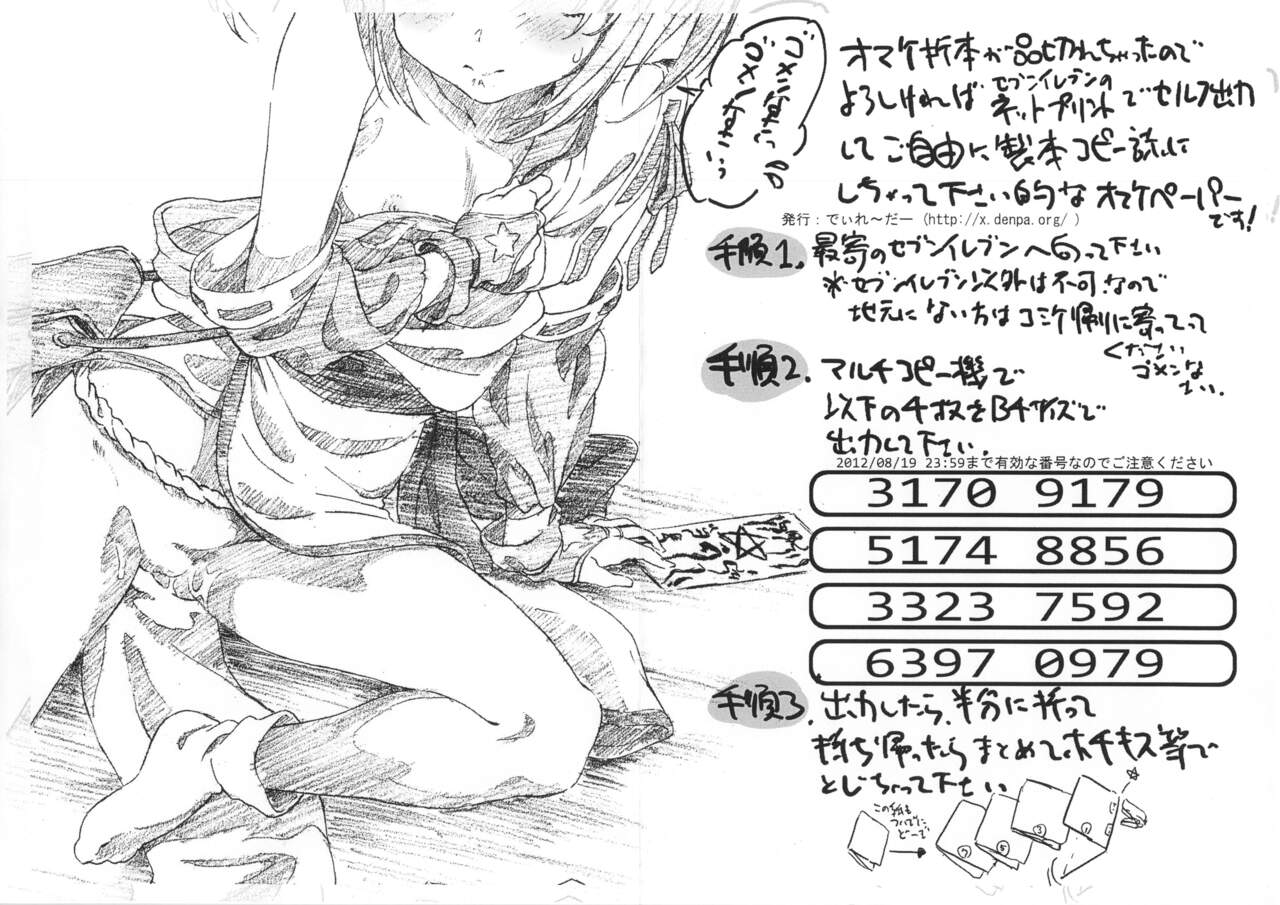 ゴメンなさいっ
ゴメンなさい…
オマケ折本が品切れちゃったので
よろしければ セブンイレブンの
ネットプリントでセルフ出力
してご自由に製本コピー誌に
しちゃって下さい的なオマケペーパー
です!
発行:でぃれ〜だー (http://x.denpa.org/ )
手順1. 最寄のセブンイレブンへ向って下さい
※セブンイレブン以外は不可なので
地元にない方はコミケ帰りに寄ってって
ください
ゴメンな
さい.
手順2. マルチコピー機で
以下の4枚をB4サイズで
出力して下さい.
2012/08/19 23:59まで有効な番号なのでご注意ください
3170 9179
5174 8856
3323 7592
6397 0979
手順3. 出力したら、半分に折って
持ち帰ったらまとめてホチキス等で
とじちゃって下さい
この紙も
ついでに
どーぞ
⑦
⑤
③
①